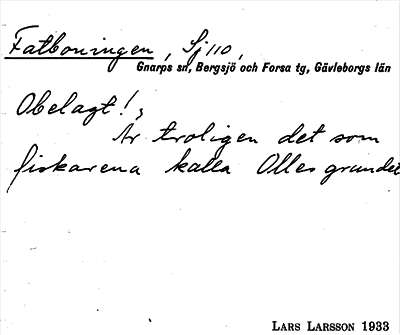 Fatboningen, Sj 110,
Gnarps sn, Bergsjö och Forsa tg, Gävleborgs län
Obelagt!,
Är troligen det som
fiskarena kalla Ollesgrundet
LARS LARSSON 1933